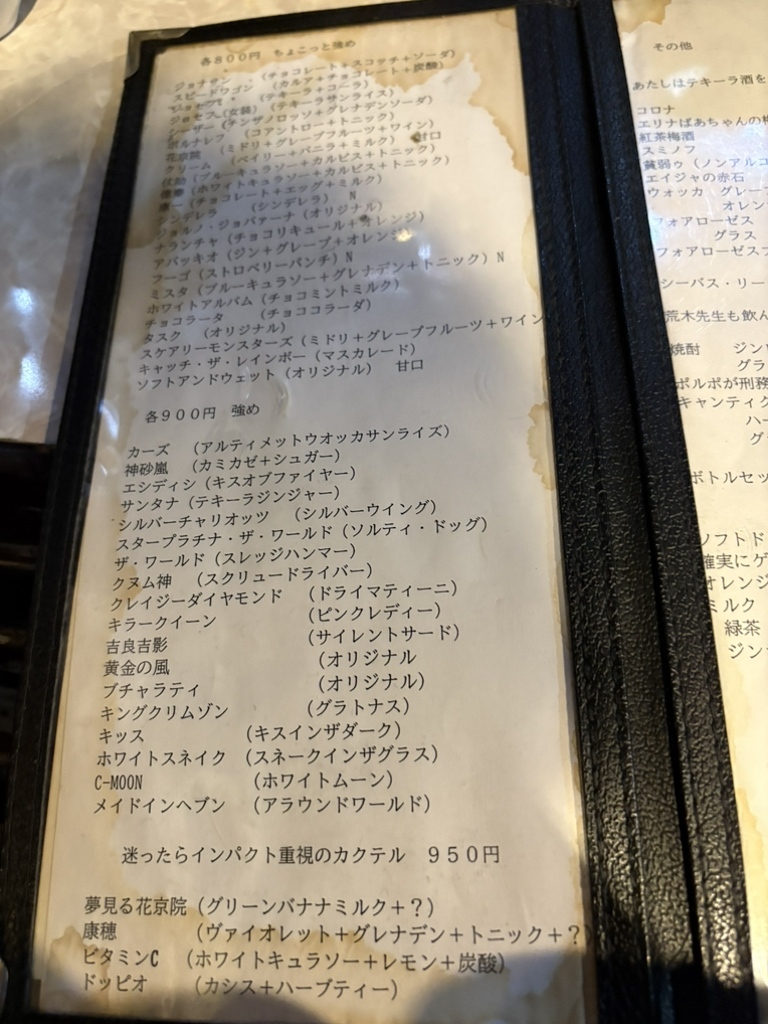 各800円 ちょこっと強め
ジョナサン (チョコレート+スコッチ+ソーダ)
スピードワゴン (カルア+チョコレート+炭酸)
ジョセフ (テキーラ+コーラ)
ジョセフ(女装) (テキーラサンライス)
シーザー (チンザノロッソ+グレナデンソーダ)
ポルナレフ (コアントロー+トニック)
花京院 (ミドリ+グレープフルーツ+ワイン)
クリーム (ベイリー+バニラ+ミルク) 甘口
仗助 (ブルーキュラソー+カルピス+トニック)
(ホワイトキュラソー+カルピス+トニック)
(チョコレート+エッグ+ミルク)
シンデレラ (シンデレラ) N
ジョルノ・ジョバァーナ (オリジナル)
ナランチャ (チョコリキュール+オレンジ)
アバッキオ (ジン+グレープ+オレンジ)
フーゴ (ストロベリーパンチ) N
ミスタ (ブルーキュラソー+グレナデン+トニック) N
ホワイトアルバム (チョコミントミルク)
チョコラータ (チョココラーダ)
タスク (オリジナル)
スケアリーモンスターズ (ミドリ+グレープフルーツ+ワイン
キャッチ・ザ・レインボー (マスカレード)
ソフトアンドウェット (オリジナル) 甘口
各900円 強め
カーズ (アルティメットウオッカサンライズ)
神砂嵐 (カミカゼ+シュガー)
エシディシ (キスオブファイヤー)
サンタナ (テキーラジンジャー)
シルバーチャリオッツ (シルバーウイング)
スタープラチナ・ザ・ワールド (ソルティ・ドッグ)
ザ・ワールド (スレッジハンマー)
クヌム神 (スクリュードライバー)
クレイジーダイヤモンド (ドライマティーニ)
キラークイーン (ピンクレディー)
吉良吉影 (サイレントサード)
黄金の風 (オリジナル
ブチャラティ (オリジナル)
キングクリムゾン (グラトナス)
キッス (キスインザダーク)
ホワイトスネイク (スネークインザグラス)
C-MOON (ホワイトムーン)
メイドインヘブン (アラウンドワールド)
迷ったらインパクト重視のカクテル 950円
夢見る花京院 (グリーンバナナミルク+?)
康穂 (ヴァイオレット+グレナデン+トニック+?
ビタミンC (ホワイトキュラソー+レモン+炭酸)
ドッピオ (カシス+ハーブティー)
その他
あたしはテキーラ酒を
コロナ
エリナばあちゃんの梅
紅茶梅酒
スミノフ
貧弱ゥ (ノンアルコ
エイジャの赤石
ウォッカ グレープ
オレン
フォアローゼス
グラス
フォアローゼスプ
シーバス・リー
荒木先生も飲ん
焼酎 ジン
グラ
ポルポが刑務
キャンティク
ハー
グ
ボトルセッ
ソフトド
確実にゲ
オレンジ
ミルク
緑茶
ジン